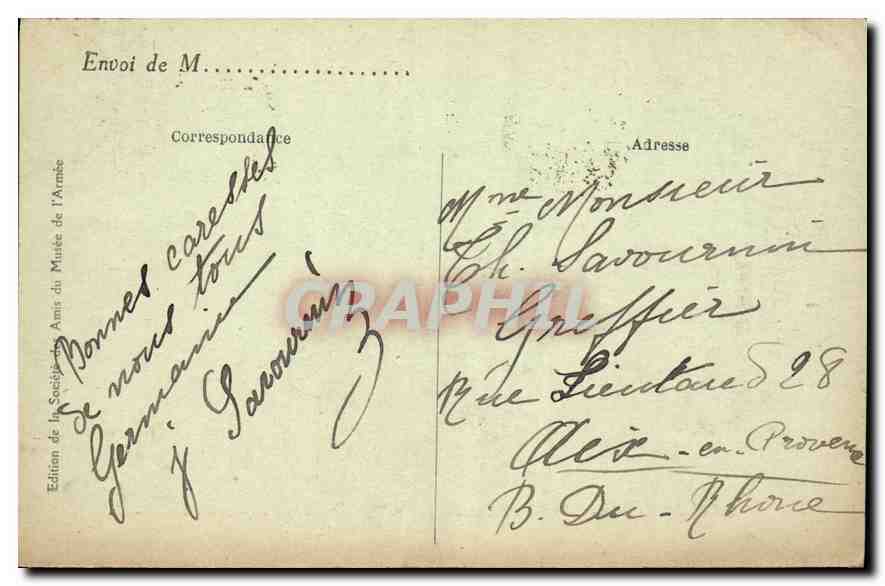 Envoi de M....................
Correspondance
Adresse
Edition de la Société des Amis du Musée de l'Armée
Bonnes caresses
de nous tous
Germaine
J Savournin
Mme Monsieur
Th. Savournin
Greffier
Rue Lieutaud 28
Aix-en-Provence
B. Du-Rhone
CPAPHIL